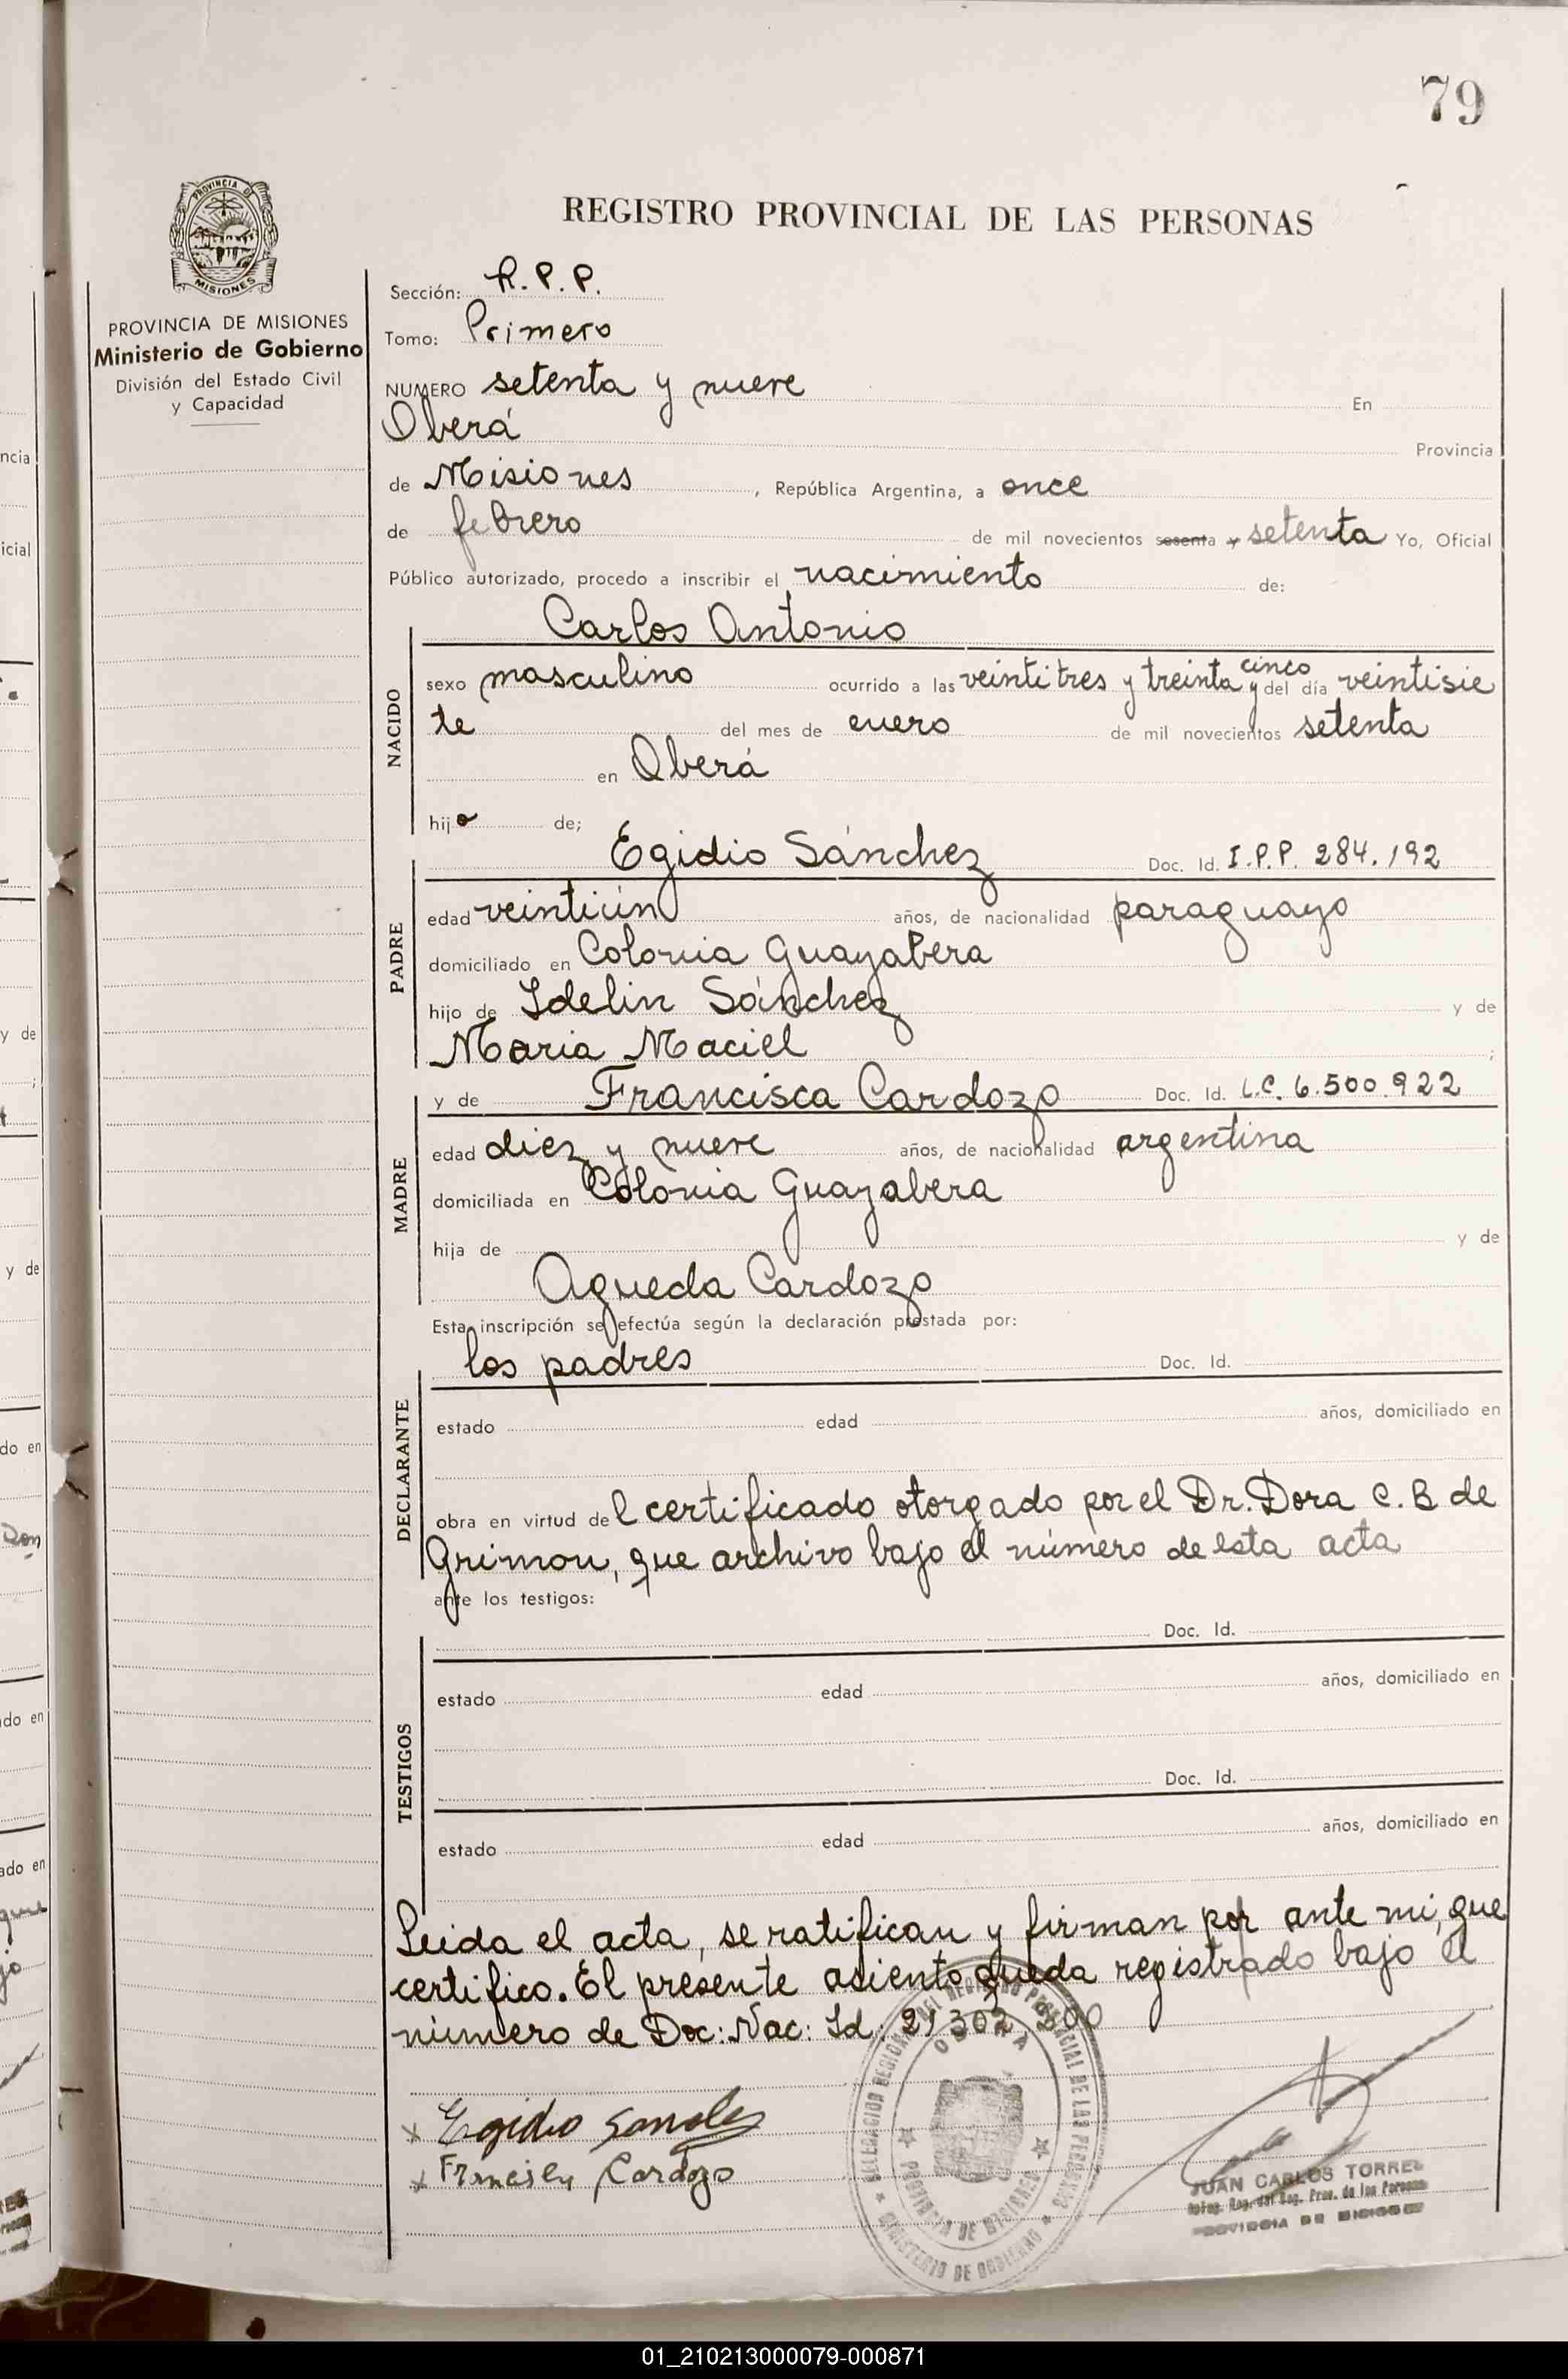 79
PROVINCIA DE
MISIONES
REGISTRO PROVINCIAL DE LAS PERSONAS
PROVINCIA DE MISIONES
Ministerio de Gobierno
División del Estado Civil
y Capacidad
Sección: R.P.P.
Tomo: Primero
NUMERO setenta y nueve En
Oberá Provincia
de Misiones, República Argentina, a once
de febrero de mil novecientos sesenta y setenta Yo, Oficial
Público autorizado, procedo a inscribir el nacimiento de:
NACIDO
Carlos Antonio
sexo masculino ocurrido a las veintitres y treinta y cinco del día veintisie
te del mes de enero de mil novecientos setenta
en Oberá
hijo de;
PADRE
Egidio Sánchez Doc. Id. I.P.P. 284.192
edad veintiún años, de nacionalidad paraguayo
domiciliado en Colonia Guayabera
hijo de Idelin Sánchez y de
Maria Maciel ;
MADRE
y de Francisca Cardozo Doc. Id. L.C. 6.500.922
edad diez y nueve años, de nacionalidad argentina
domiciliada en Colonia Guayabera
hija de y de
Agueda Cardozo
Esta inscripción se efectúa según la declaración prestada por:
DECLARANTE
los padres Doc. Id.
estado edad años, domiciliado en
obra en virtud del certificado otorgado por el Dr. Dora C. B de
Grimon, que archivo bajo el número de esta acta
ante los testigos:
TESTIGOS
Doc. Id.
estado edad años, domiciliado en
Doc. Id.
estado edad años, domiciliado en
Leida el acta, se ratifican y firman por ante mi, que
certifico. El presente asiento queda registrado bajo el
número de Doc: Nac: Id: 21.302.
Egidio
Cardozo
OBERA
PROVINCIA DE MISIONES
MINISTERIO DE GOBIERNO
JUAN CARLOS TORRES
01_210213000079-000871